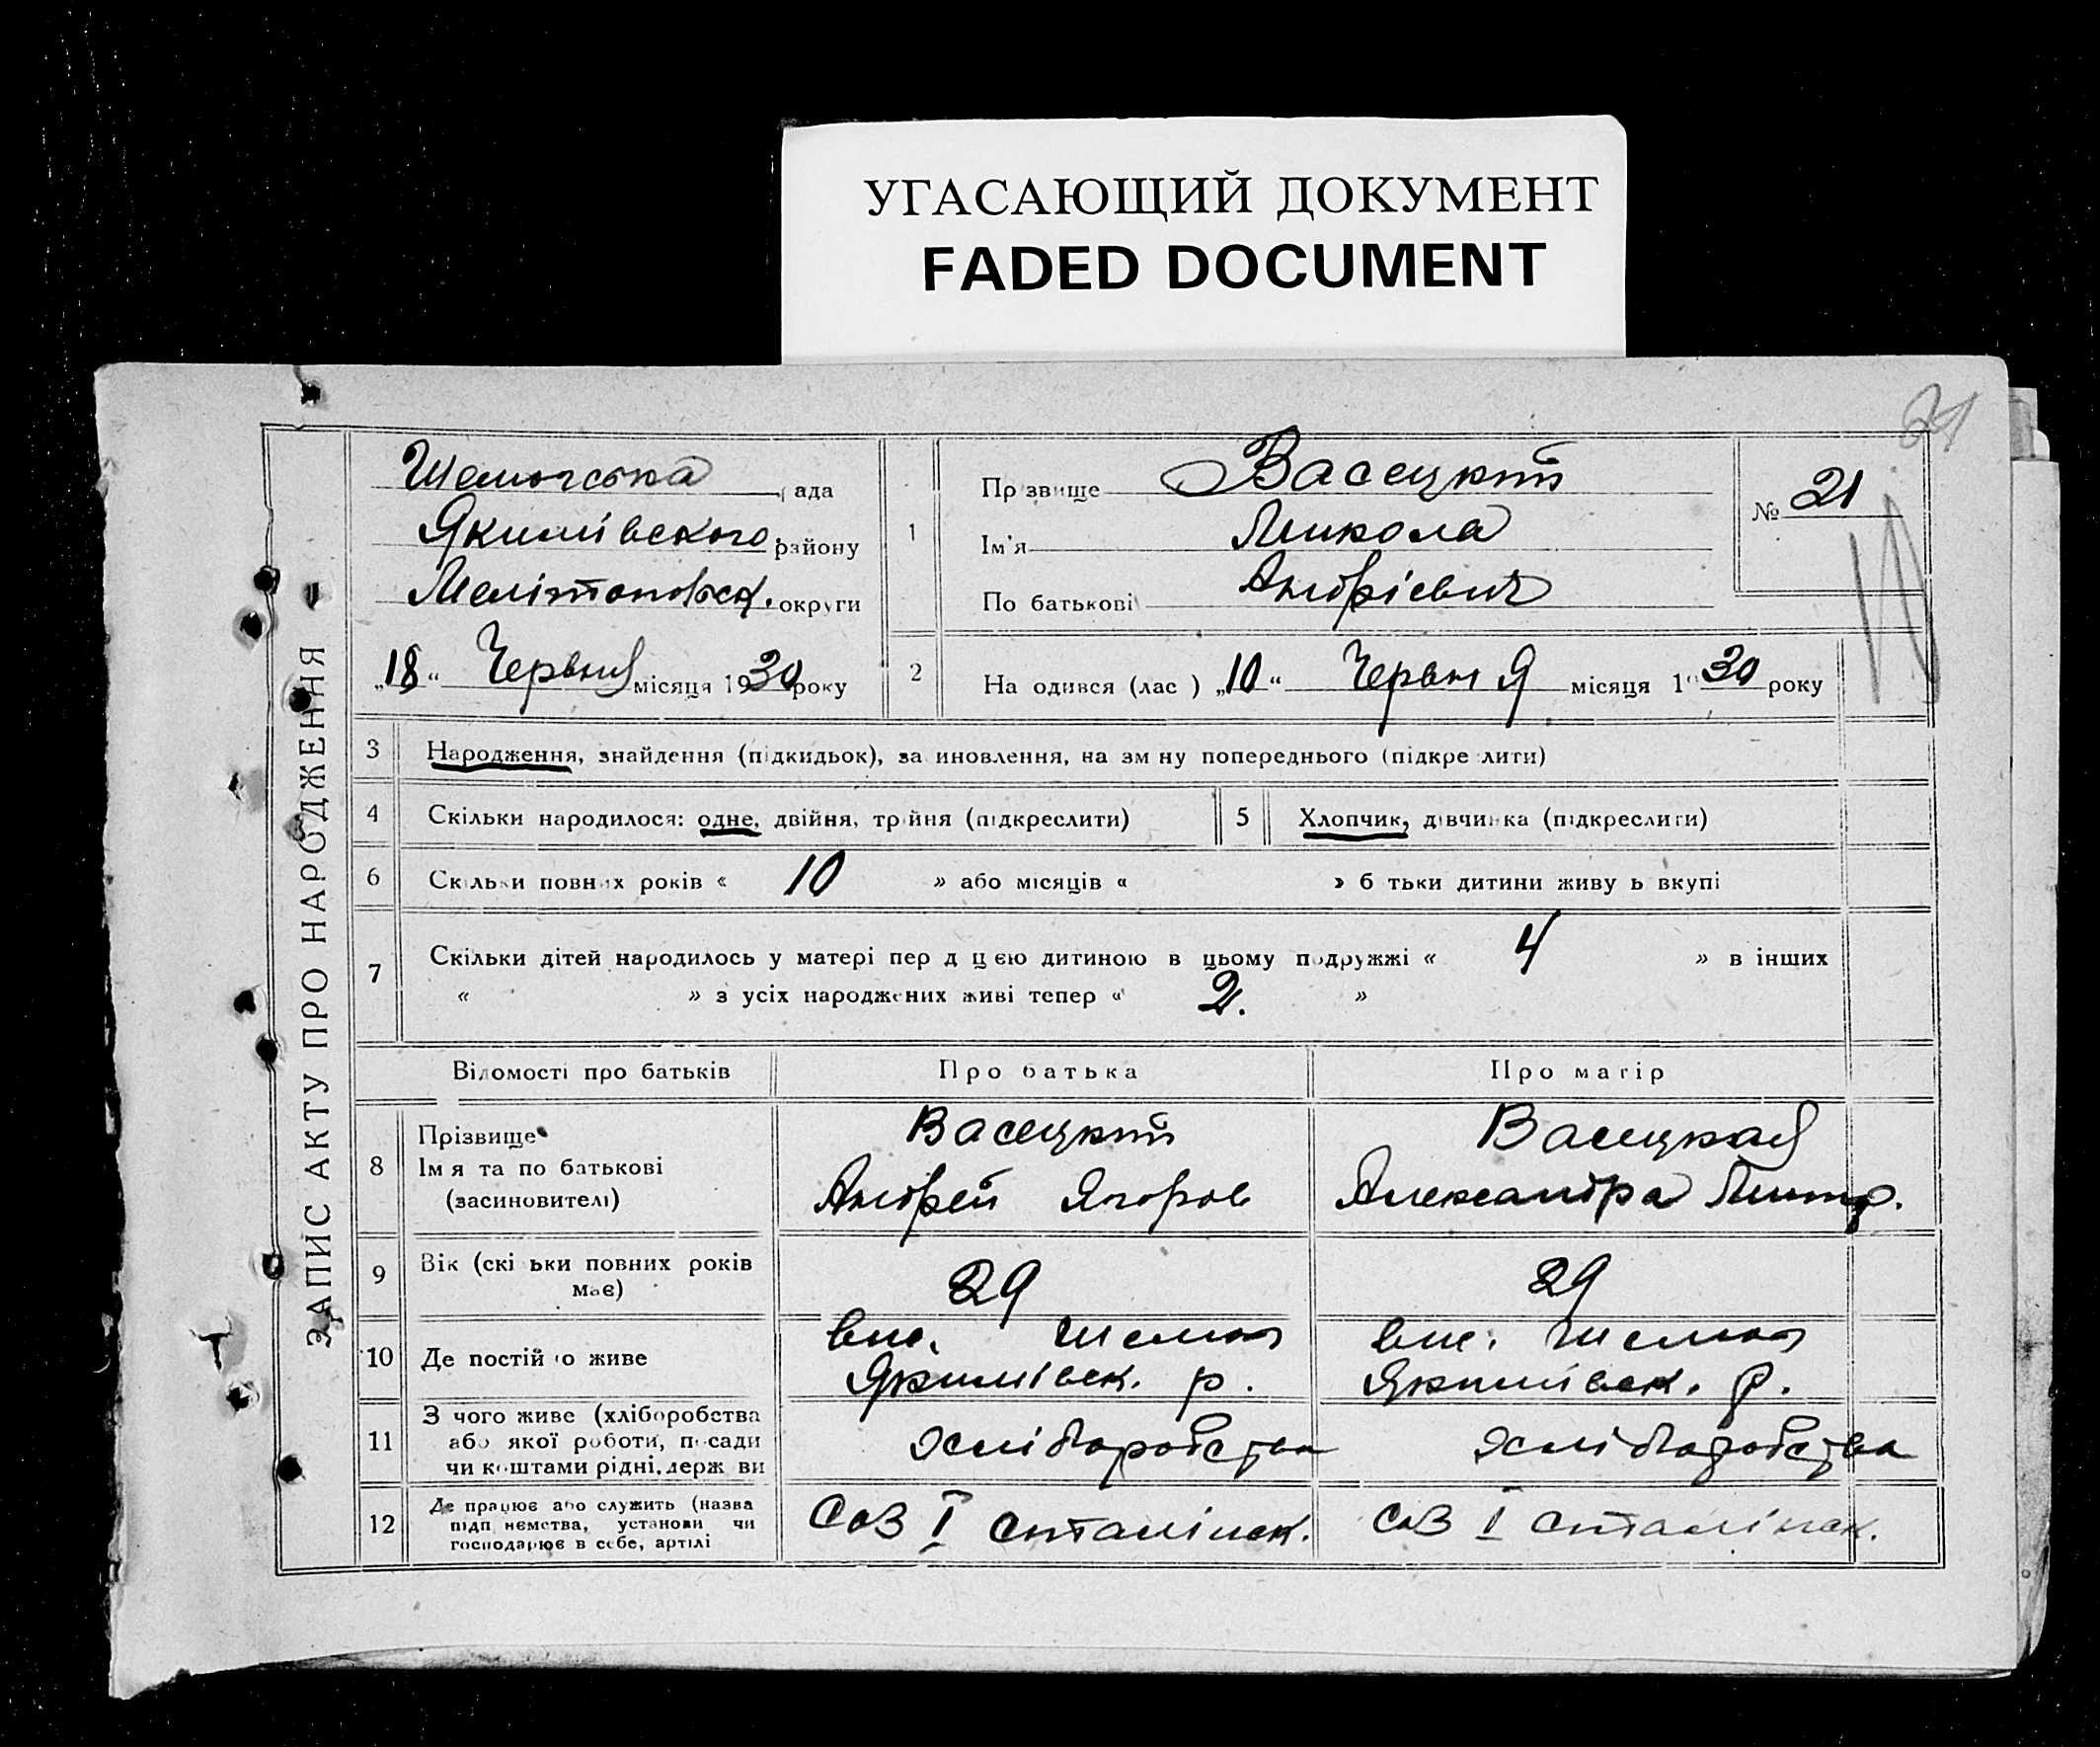 УГАСАЮЩИЙ ДОКУМЕНТ
FADED DOCUMENT
21
ЗАПИС АКТУ ПРО НАРОДЖЕННЯ
Шелюгська рада
Якимівського району
Мелітопольск. округи
„18“ Червня місяця 1930 року
1
Прізвище Васецкий
Ім'я Микола
По батькові Андрієвич
№ 21
2
На одився (лас ) „10“ Червня місяця 1930 року
3 Народження, знайдення (підкидьок), за иновлення, на зм ну попереднього (підкре лити)
4 Скільки народилося: одне, двійня, трійня (підкреслити)
5 Хлопчик, дівчинка (підкреслити)
6 Скільки повних років « 10 » або місяців « » б тьки дитини живу ь вкупі
7 Скільки дітей народилось у матері пер д цією дитиною в цьому подружжі « 4 » в інших
« » з усіх народжених живі тепер « 2. »
Відомості про батьків Про батька Про матір
8 Прізвище Васецкий Васецкая
Ім я та по батькові (засиновителі) Андрей Ягоров Александра Дмитр.
9 Вік (скі ьки повних років має) 29 29
10 Де постій о живе
вис. Шелюги вис. Шелюги
Якимівск. р. Якимівск. р.
11 З чого живе (хліборобства
або якої роботи, посади
чи коштами рідні, держ ви
хліборобства хліборобства
12 Де працює або служить (назва
підп иємства, установи чи
господарює в себе, артілі
Соз І Сталінск. Соз І Сталінск.